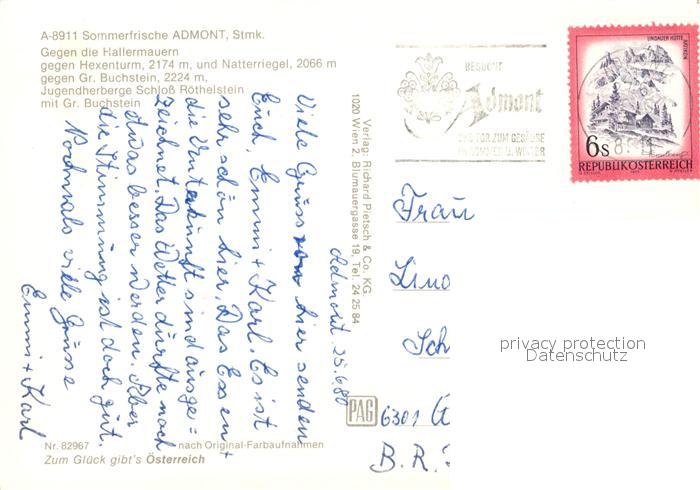 A-8911 Sommerfrische ADMONT, Stmk.
Gegen die Hallermauern
gegen Hexenturm, 2174 m, und Natterriegel, 2066 m
gegen Gr. Buchstein, 2224 m,
Jugendherberge Schloß Röthelstein
mit Gr. Buchstein
Admont 25.6.80
Viele Grüsse von hier senden
Euch, Emmi + Karl. Es ist
sehr schön hier. Das Essen +
die Unterkünft sind ausge=
zeichnet. Das Wetter dürfte noch
etwas besser werden. Aber
die Stimmung ist doch gut.
Nochmals viele Grüsse
Emmi + Karl
Nr. 82967 nach Original-Farbaufnahmen
Zum Glück gibt's Österreich
Verlag: Richard Pietsch & Co. KG
1020 Wien 2, Blumauergasse 19, Tel. 24 25 84
PAG
BESUCHT
Admont
DAS TOR ZUM GESÄUSE
IM SOMMER U. WINTER
LINDAUER HÜTTE
RÄTIKON
6s
REPUBLIK ÖSTERREICH
Frau
Lind
Sch
6301
B.R.
privacy protection
Datenschutz